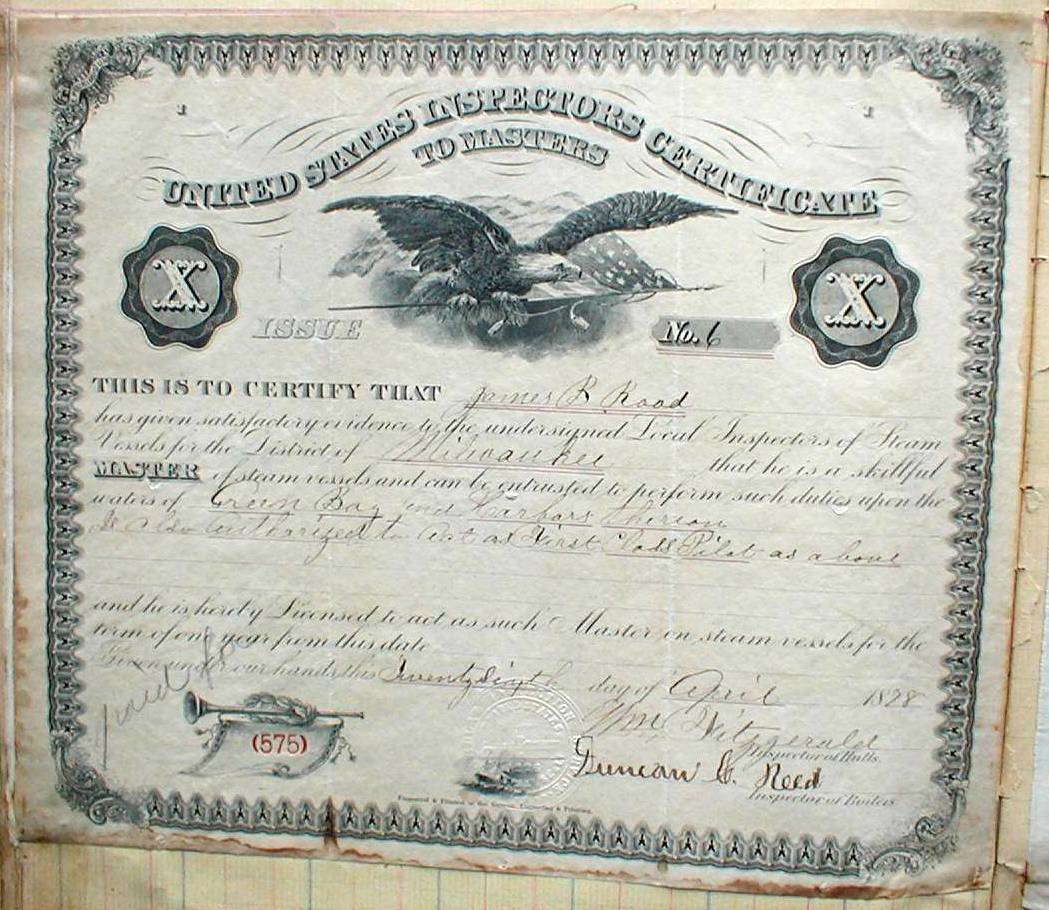 UNITED STATES INSPECTORS CERTIFICATE
TO MASTERS
X
X
ISSUE
No. 6
THIS IS TO CERTIFY THAT James B Rood
has given satisfactory evidence to the undersigned Local Inspectors of Steam
Vessels for the District of Milwaukee that he is a skillful
MASTER of steam vessels and can be entrusted to perform such duties upon the
waters of Green Bay and Harbors thereon
Is also authorized to Act as First Class Pilot as above
and he is hereby Licensed to act as such Master on steam vessels for the
term of one year from this date
Given under our hands this Twenty Sixth day of April 1878
Wm Fitzgerald
Inspector of Hulls.
(575)
Duncan C. Reed
Inspector of Boilers